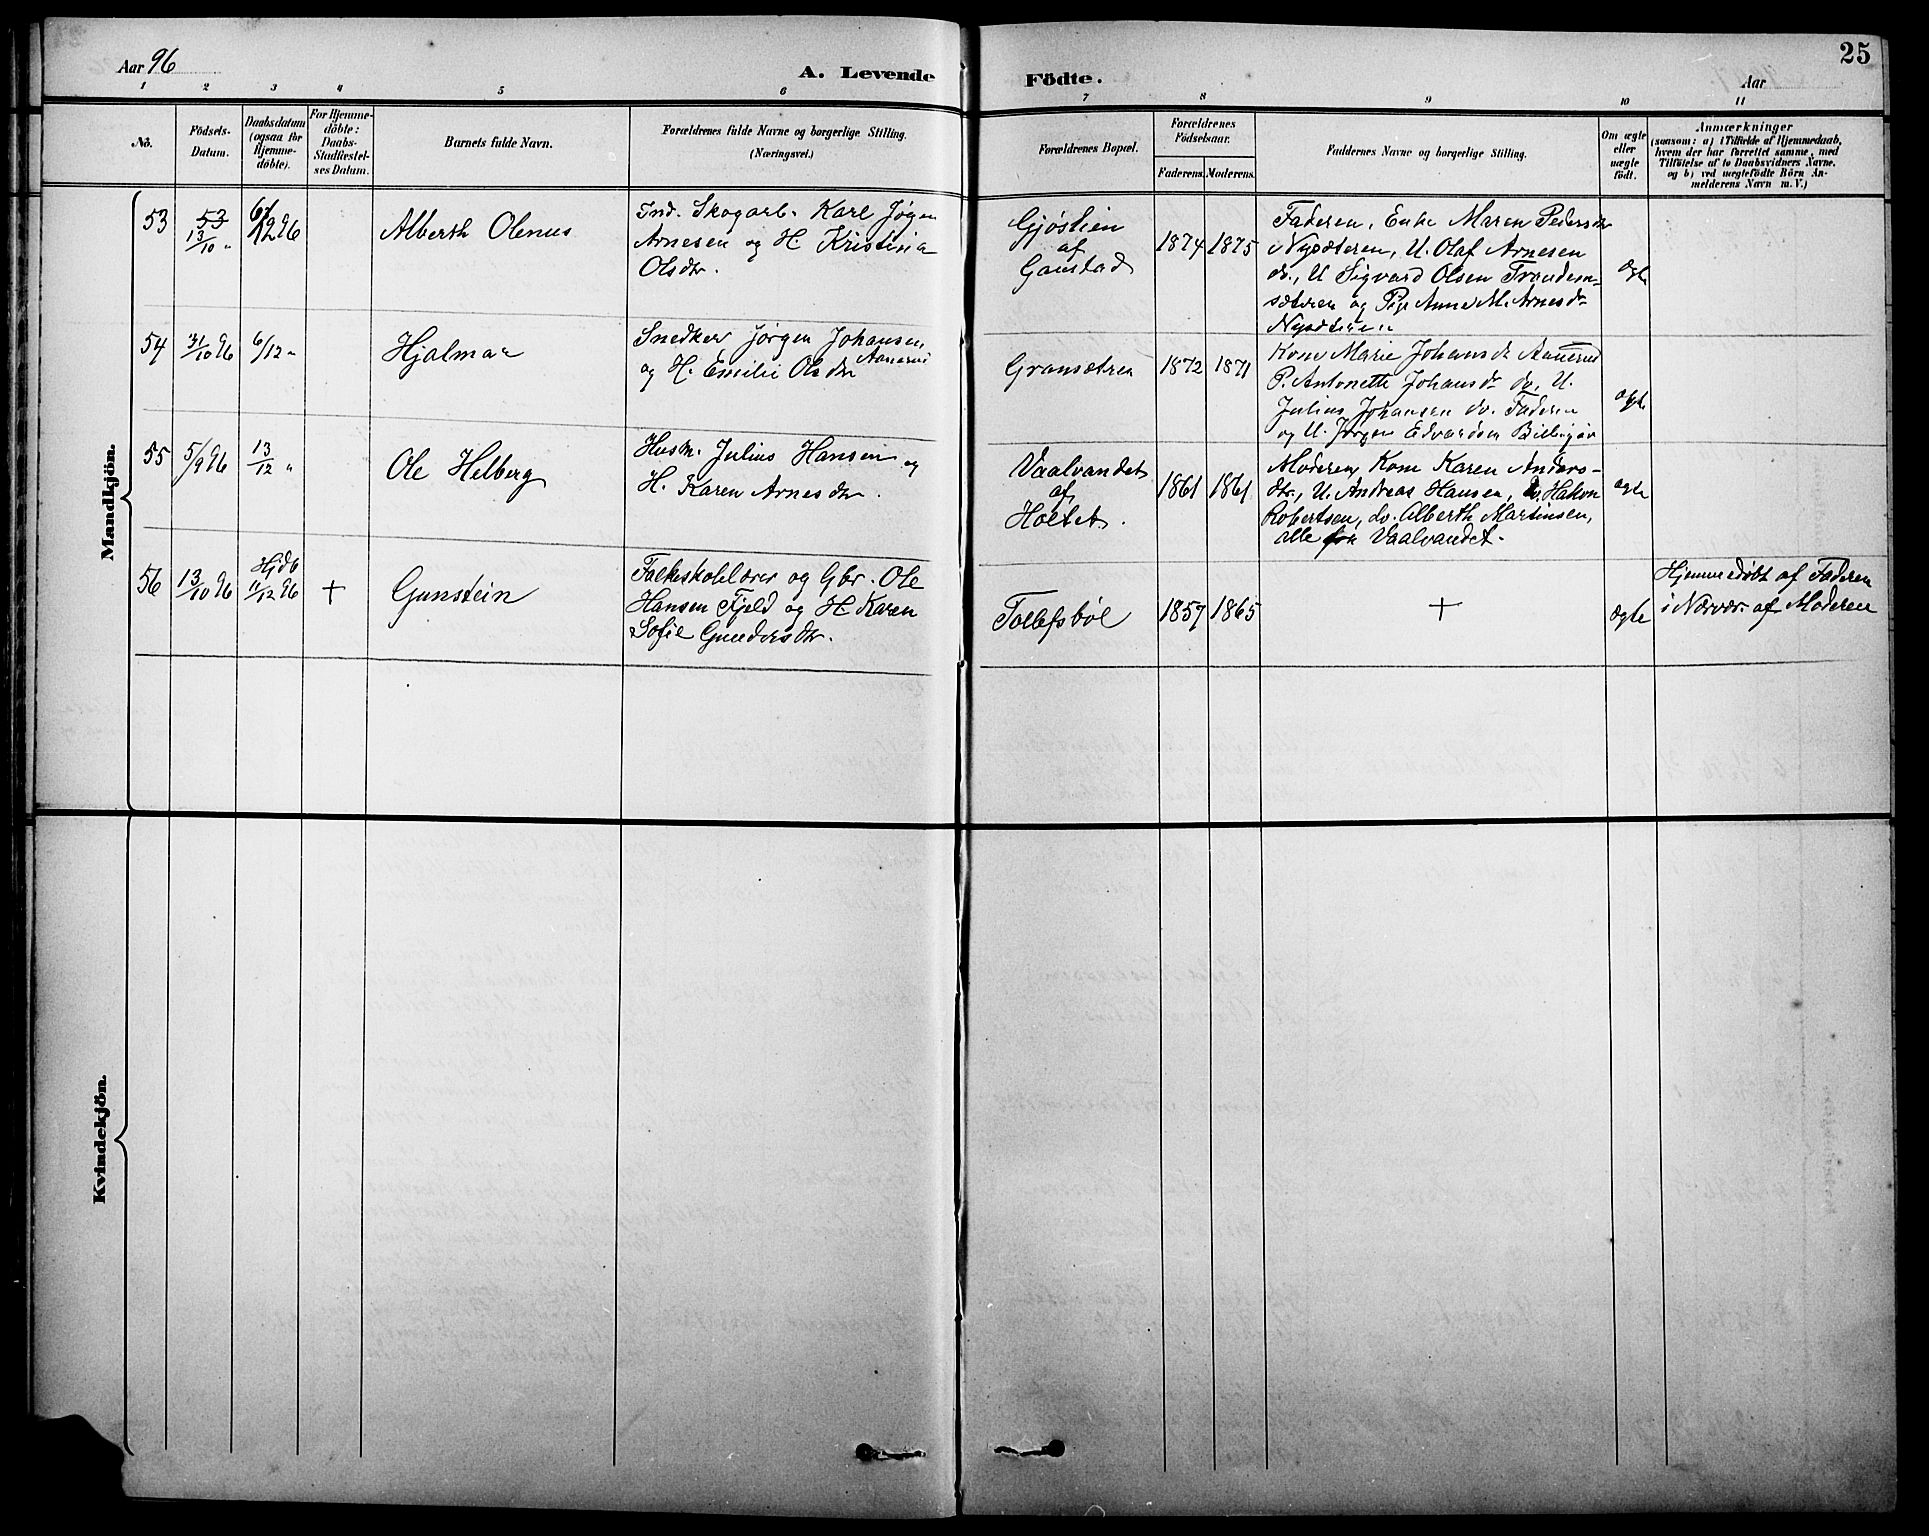 Aar 96
A. Levende Födte.
Aar
25
1 2 3 4 5 6 7 8 9 10 11
No.
Födsels-
Datum.
Daabsdatum
(ogsaa for
Hjemme-
döbte).
For Hjemme-
döbte:
Daabs-
Stadfæstel-
ses Datum.
Barnets fulde Navn.
Forældrenes fulde Navne og borgerlige Stilling.
(Næringsvei.)
Forældrenes Bopæl.
Forældrenes
Födselsaar.
Faderens. Moderens.
Faddernes Navne og borgerlige Stilling.
Om ægte
eller
uægte
födt.
Anmærkninger
(saasom: a) i Tilfælde af Hjemmedaab,
hvem der har forrettet samme, med
Tilföielse af to Daabsvidners Navne,
og b) ved uægtefödte Börn An-
melderens Navn m. V.)
Mandkjön.
53
53
13/10 "
6/12 96
Alberth Olenus
Ind. Skogarb. Karl Jørgen
Arnesen og H. Kristina
Olsdtr.
Gjøstien
af
Gaustad
1874 1875
Faderen, Enke Maren Pedersdtr
i Nysæteren, U. Olaf Arnesen
do., U Sigvard Olsen Trondem-
sæteren og Pige Anne M. Arnesdtr
Nysæteren
ægte
54
31/10 96
6/12 "
Hjalmar
Snedker Jørgen Johansen
Aanerud
og H. Emilie Olsdtr
Gransætren
1872 1871
Kone Marie Johansdtr Aanerud
P. Antonette Johansdtr do, U.
Julius Johansen do. Faderen
og U. Jørgen Edvardsen
ægte
55
5/9 96
13/12 "
Ole Helberg
Husm. Julius Hansen og
H. Karen Arnesdtr.
Vaalvandet
af
Holtet.
1861 1861
Moderen, Kone Karen Anders-
dtr., U. Andreas Hansen, do. Hakon
Robertsen, do. Alberth Martinsen,
alle fra Vaalvandet.
ægte
56
13/10 96
Hjdb
11/12 96
+
Gunstein
Folkeskolelærer og Gbr. Ole
Hansen Fjeld og H Karen
Sofie Gundersdtr.
Tollefsbøl
1857 1865
+
ægte
Hjemmedøbt af Faderen
i Nærvær. af Moderen
Kvindekjön.